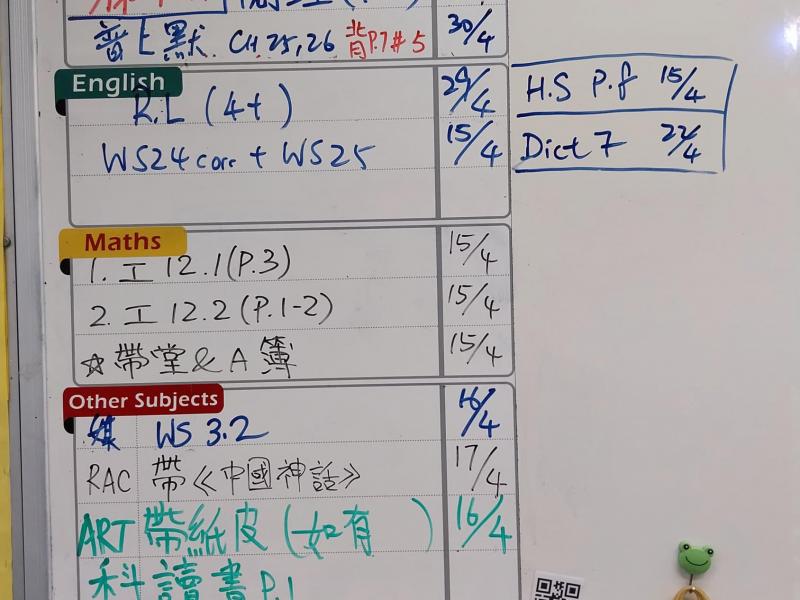 普上默 CH 25, 26 背P.7 # 5 30/4
English
R.L (4t) 29/4
WS24 corr + WS25 15/4
H.S P.8 15/4
Dict 7 22/4
Maths
1. 工 12.1 (P.3) 15/4
2. 工 12.2 (P.1-2) 15/4
☆ 帶堂 & A 簿 15/4
Other Subjects
媒 WS 3.2 16/4
RAC 帶《中國神話》 17/4
ART 帶紙皮 (如有 ) 16/4
科 讀書 P.1